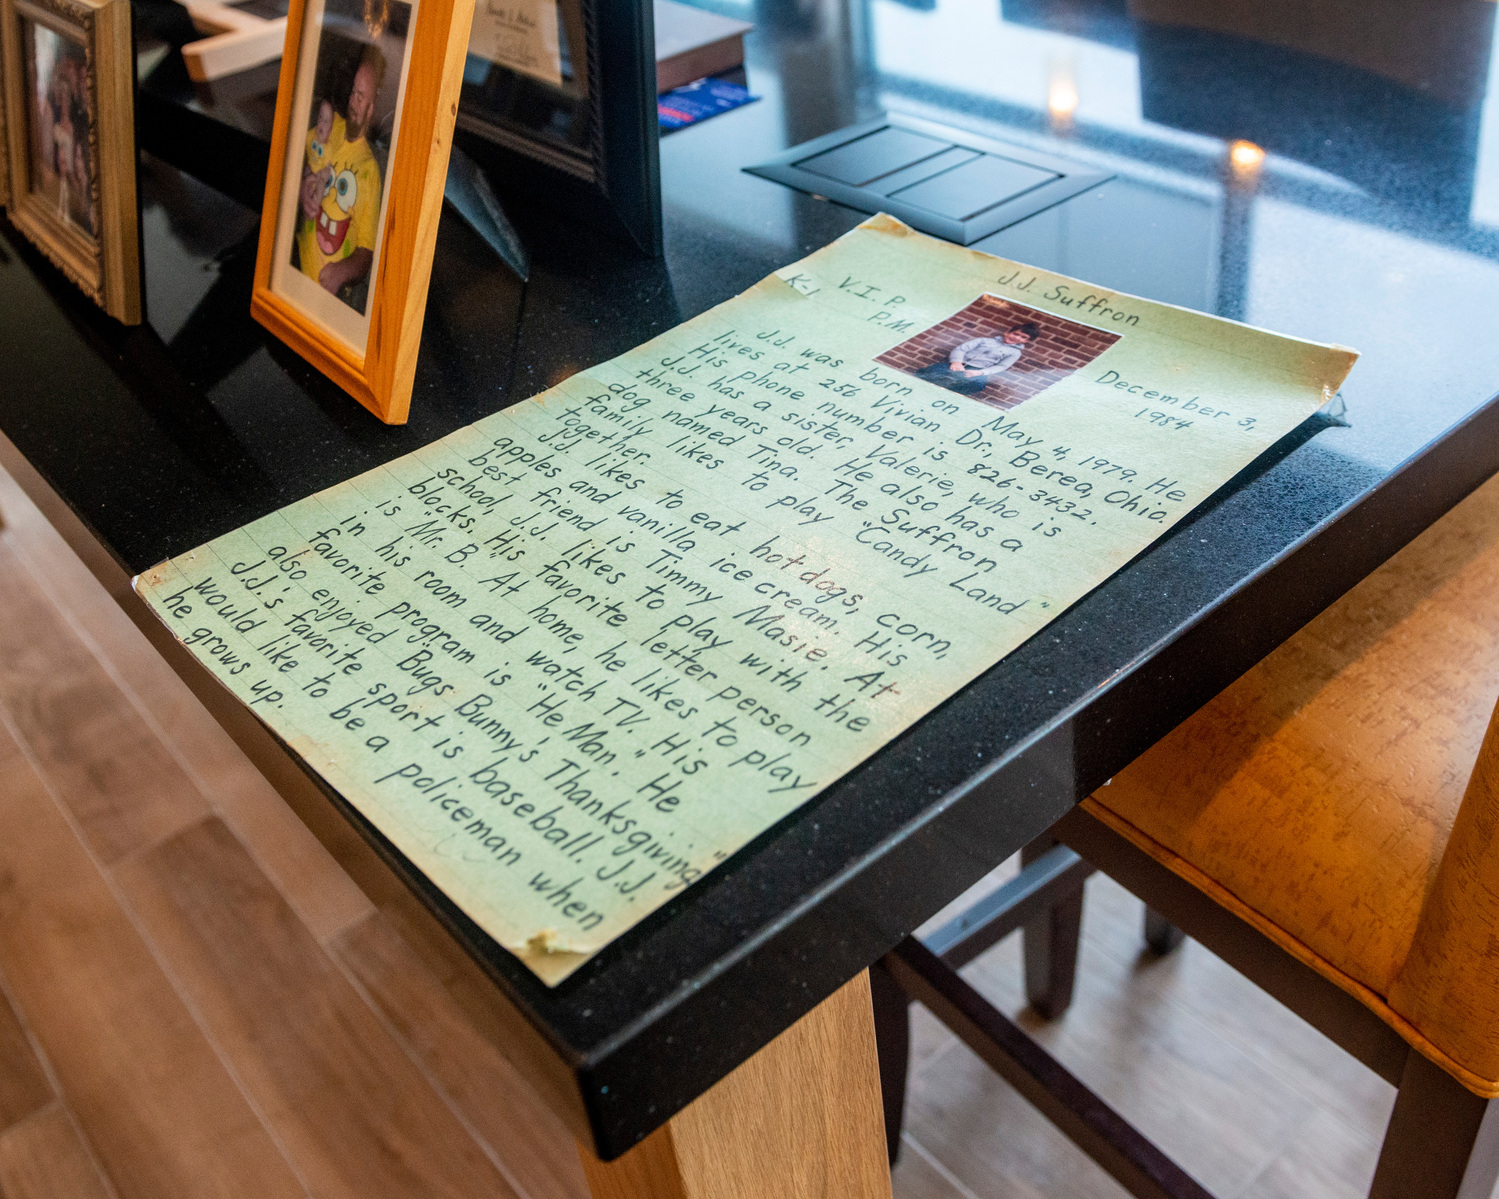 J.J. Suffron
V.I.P.
K-1
P.M.
December 3,
1984
J.J. was born on May 4, 1979. He
lives at 256 Vivian Dr., Berea, Ohio.
His phone number is 826-3432.
J.J. has a sister Valerie, who is
three years old. He also has a
dog named Tina. The Suffron
family likes to play "Candy Land"
together.
J.J. likes to eat hotdogs, corn,
apples and vanilla ice cream. His
best friend is Timmy Masie. At
school, J.J. likes to play with the
blocks. His favorite letter person
is "Mr. B. At home, he likes to play
in his room and watch TV. His
favorite program is "He Man." He
also enjoyed "Bugs Bunny's Thanksgiving."
J.J.'s favorite sport is baseball. J.J.
would like to be a policeman when
he grows up.